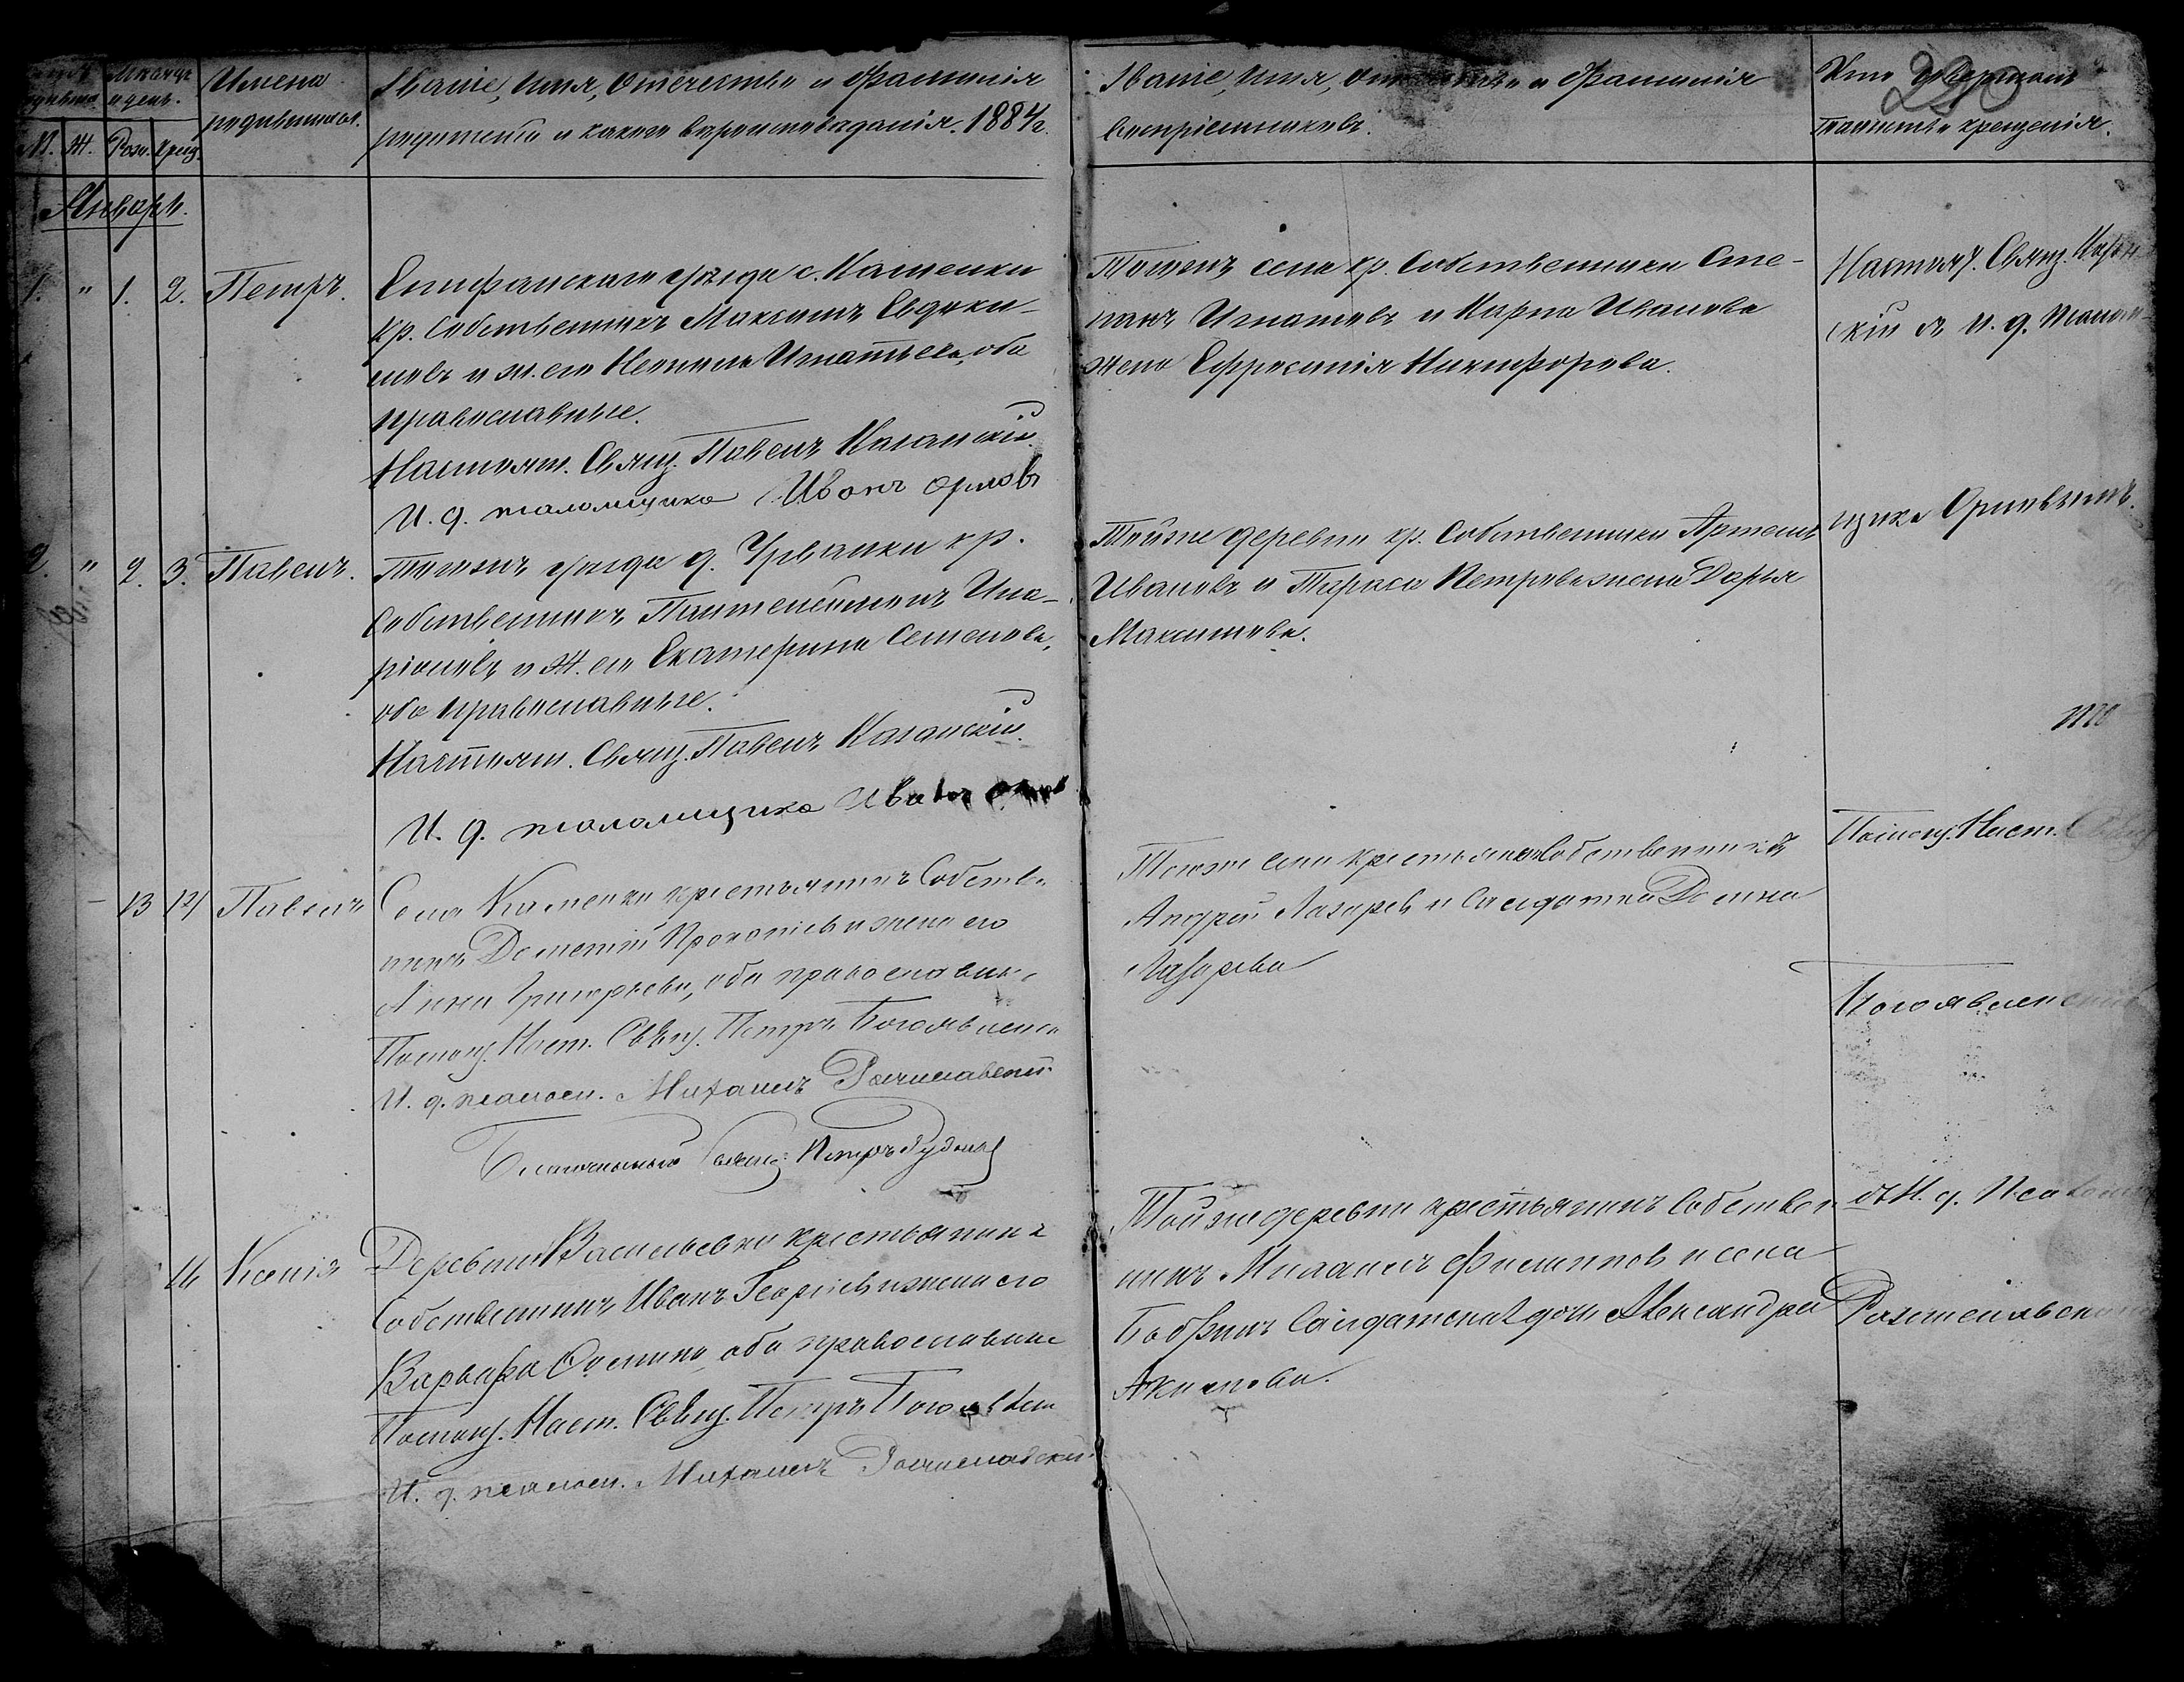 Мѣсяцъ
и день.
М. Ж. Рожд. Крещ.
Имена
родившихся.
Званіе, имя, отечество и фамилія
родителей и какого вѣроисповѣданія. 1884 г.
Званіе, имя, отечество и фамилія
воспріемниковъ.
Кто совершалъ
таинство крещенія.
290
Январь.
1. " 1. 2. Петръ.
Епифанскаго уѣзда с. Каменки
кр. собственникъ Максимъ Евдоки-
мовъ и ж. его Игнатьева, оба
православные.
Настоят. Свящ. Павелъ Казанскій.
И. д. псаломщика Иванъ Орловъ
Тогожъ села кр. собственники Сте-
панъ Игнатовъ и Карпа Иванова
жена Ефросинія Никифорова.
Настоят. Свящ. Казан
скій съ и. д. псалом-
щика Орловымъ.
2. " 2. 3. Павелъ.
Тогожъ уѣзда д. Урванки кр.
собственникъ Пантелеймонъ Ила-
ріоновъ и ж. его Екатерина Семенова,
оба православные.
Настоят. Свящ. Павелъ Казанскій.
И. д. псаломщика Иванъ
Тойже деревни кр. собственники Артемъ
Ивановъ и Тараса Петрова жена Дарья
Максимова.
то
— 13 14 Павелъ
Села Каменки крестьянинъ Собстве
нникъ Дометій Прокопіевъ и жена его
Анна Григорьева, оба православные
Помощ. Наст. Свящ. Петръ Богоявленс
И. д. псаломщ. Михаилъ Рождественскій
Благочинный Священ. Петръ
Тогоже села крестьянинъ Собственникъ
Андрей Лазаревъ и Солдатка Домна
Лазарева
Помощ. Наст. Свящ
Богоявленскій
16 Ксенія
Деревни Васильевки крестьянинъ
Собственникъ Иванъ Георгіевъ и жена его
Варвара Ѳомина, оба православные
Помощ. Наст. Свящ. Петръ Богоявлен
И. д. псаломщ. Михаилъ Рождественскій
Тойже деревни крестьянинъ Собствен
никъ Михаилъ Филиповъ и села
Бобрикъ Солдатская дочь Александра
Акимова.
съ И. д. Псалом